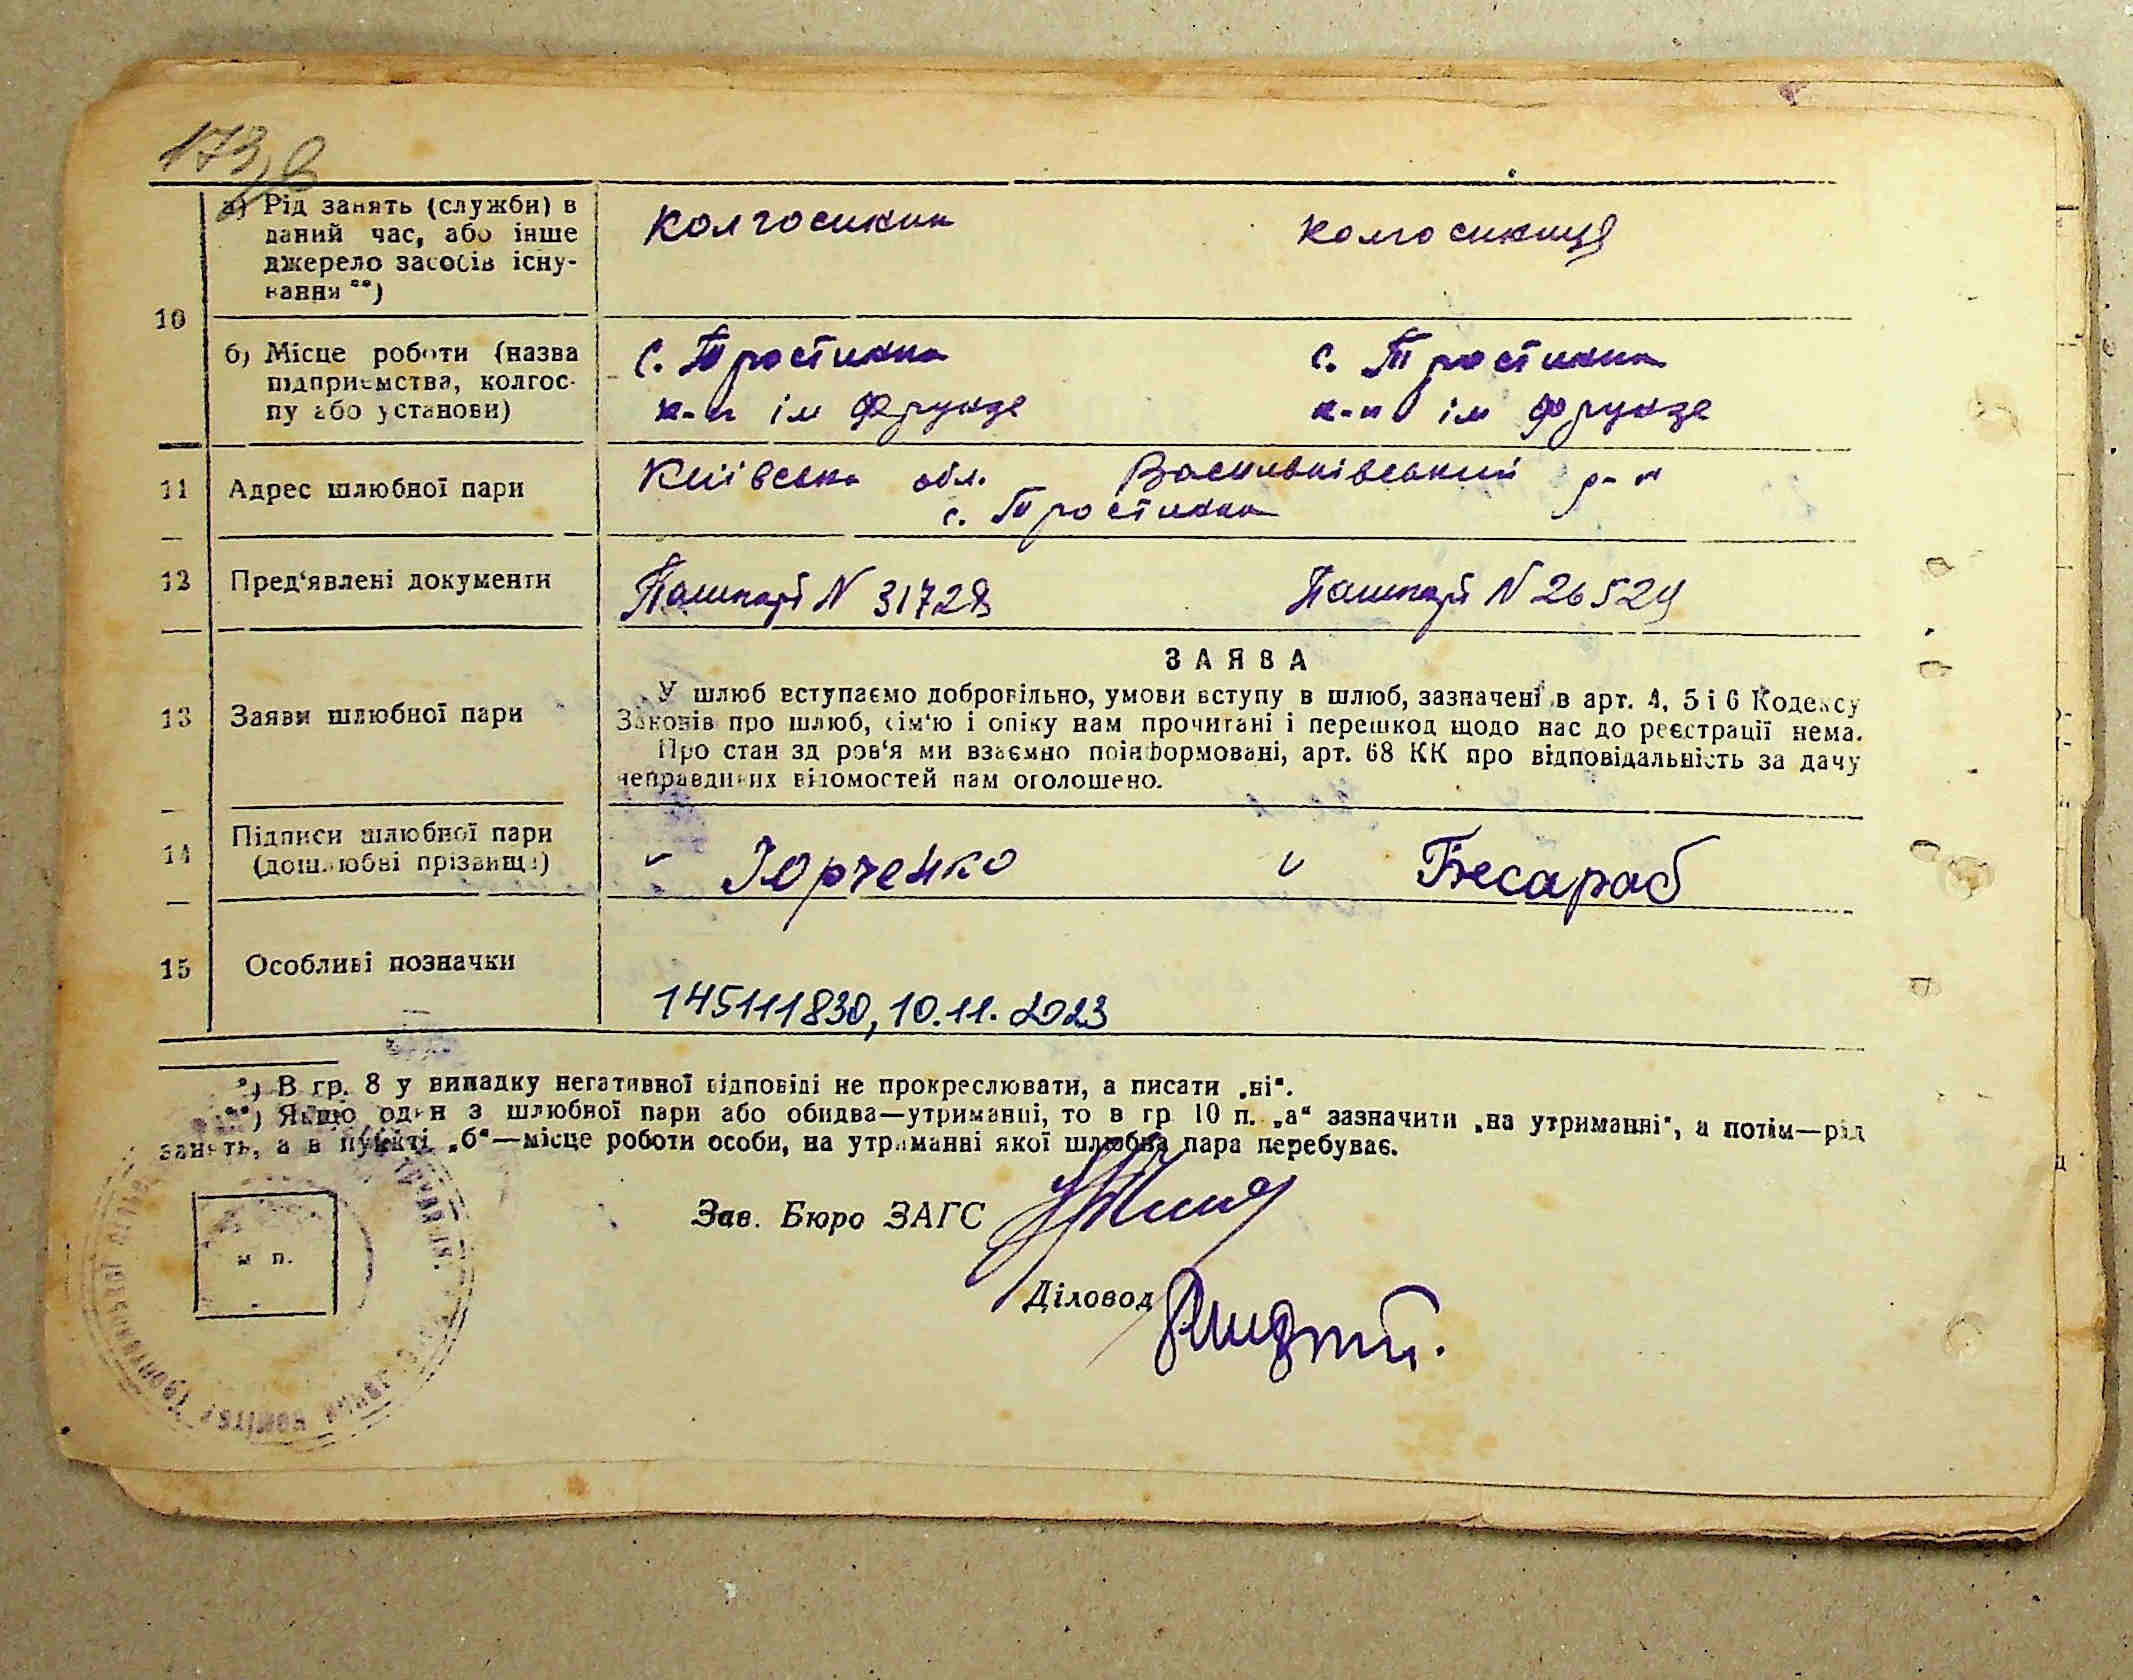 173
10
а) Рід занять (служби) в
даний час, або інше
джерело засобів існу-
вання **)
колгоспник колгоспниця
б) Місце роботи (назва
підприємства, колгос-
пу або установи)
с. Тростинка с. Тростинка
к-п ім Фрунзе к-п ім Фрунзе
11 Адрес шлюбної пари
Київська обл. Васильківський р-н
с. Тростинка
12 Пред'явлені документи
Пашпорт N 31728 Пашпорт N 26529
13 Заяви шлюбної пари
ЗАЯВА
У шлюб вступаємо добровільно, умови вступу в шлюб, зазначені в арт. 4, 5 і 6 Кодексу
Законів про шлюб, сім'ю і опіку нам прочитані і перешкод щодо нас до реєстрації нема.
Про стан здоров'я ми взаємно поінформовані, арт. 68 КК про відповідальність за дачу
неправдивих відомостей нам оголошено.
14 Підписи шлюбної пари
(дошлюбні прізвища)
Юрченко Бесараб
15 Особливі позначки
145111830, 10.11.2023
*) В гр. 8 у випадку негативної відповіді не прокреслювати, а писати „ні".
**) Якщо один з шлюбної пари або обидва—утриманці, то в гр 10 п. „а" зазначити „на утриманні", а потім—рід
занять, а в пункті „б"—місце роботи особи, на утриманні якої шлюбна пара перебуває.
м п.
Зав. Бюро ЗАГС
Діловод